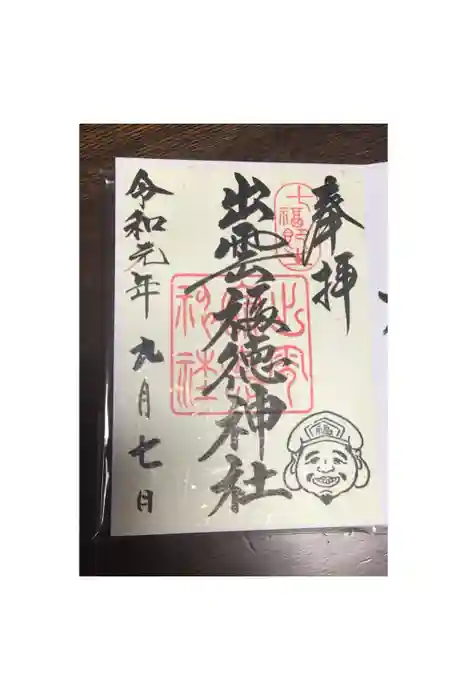 奉拝
七福即生
出雲福徳神社
出雲福徳神社
令和元年 九月七日
福